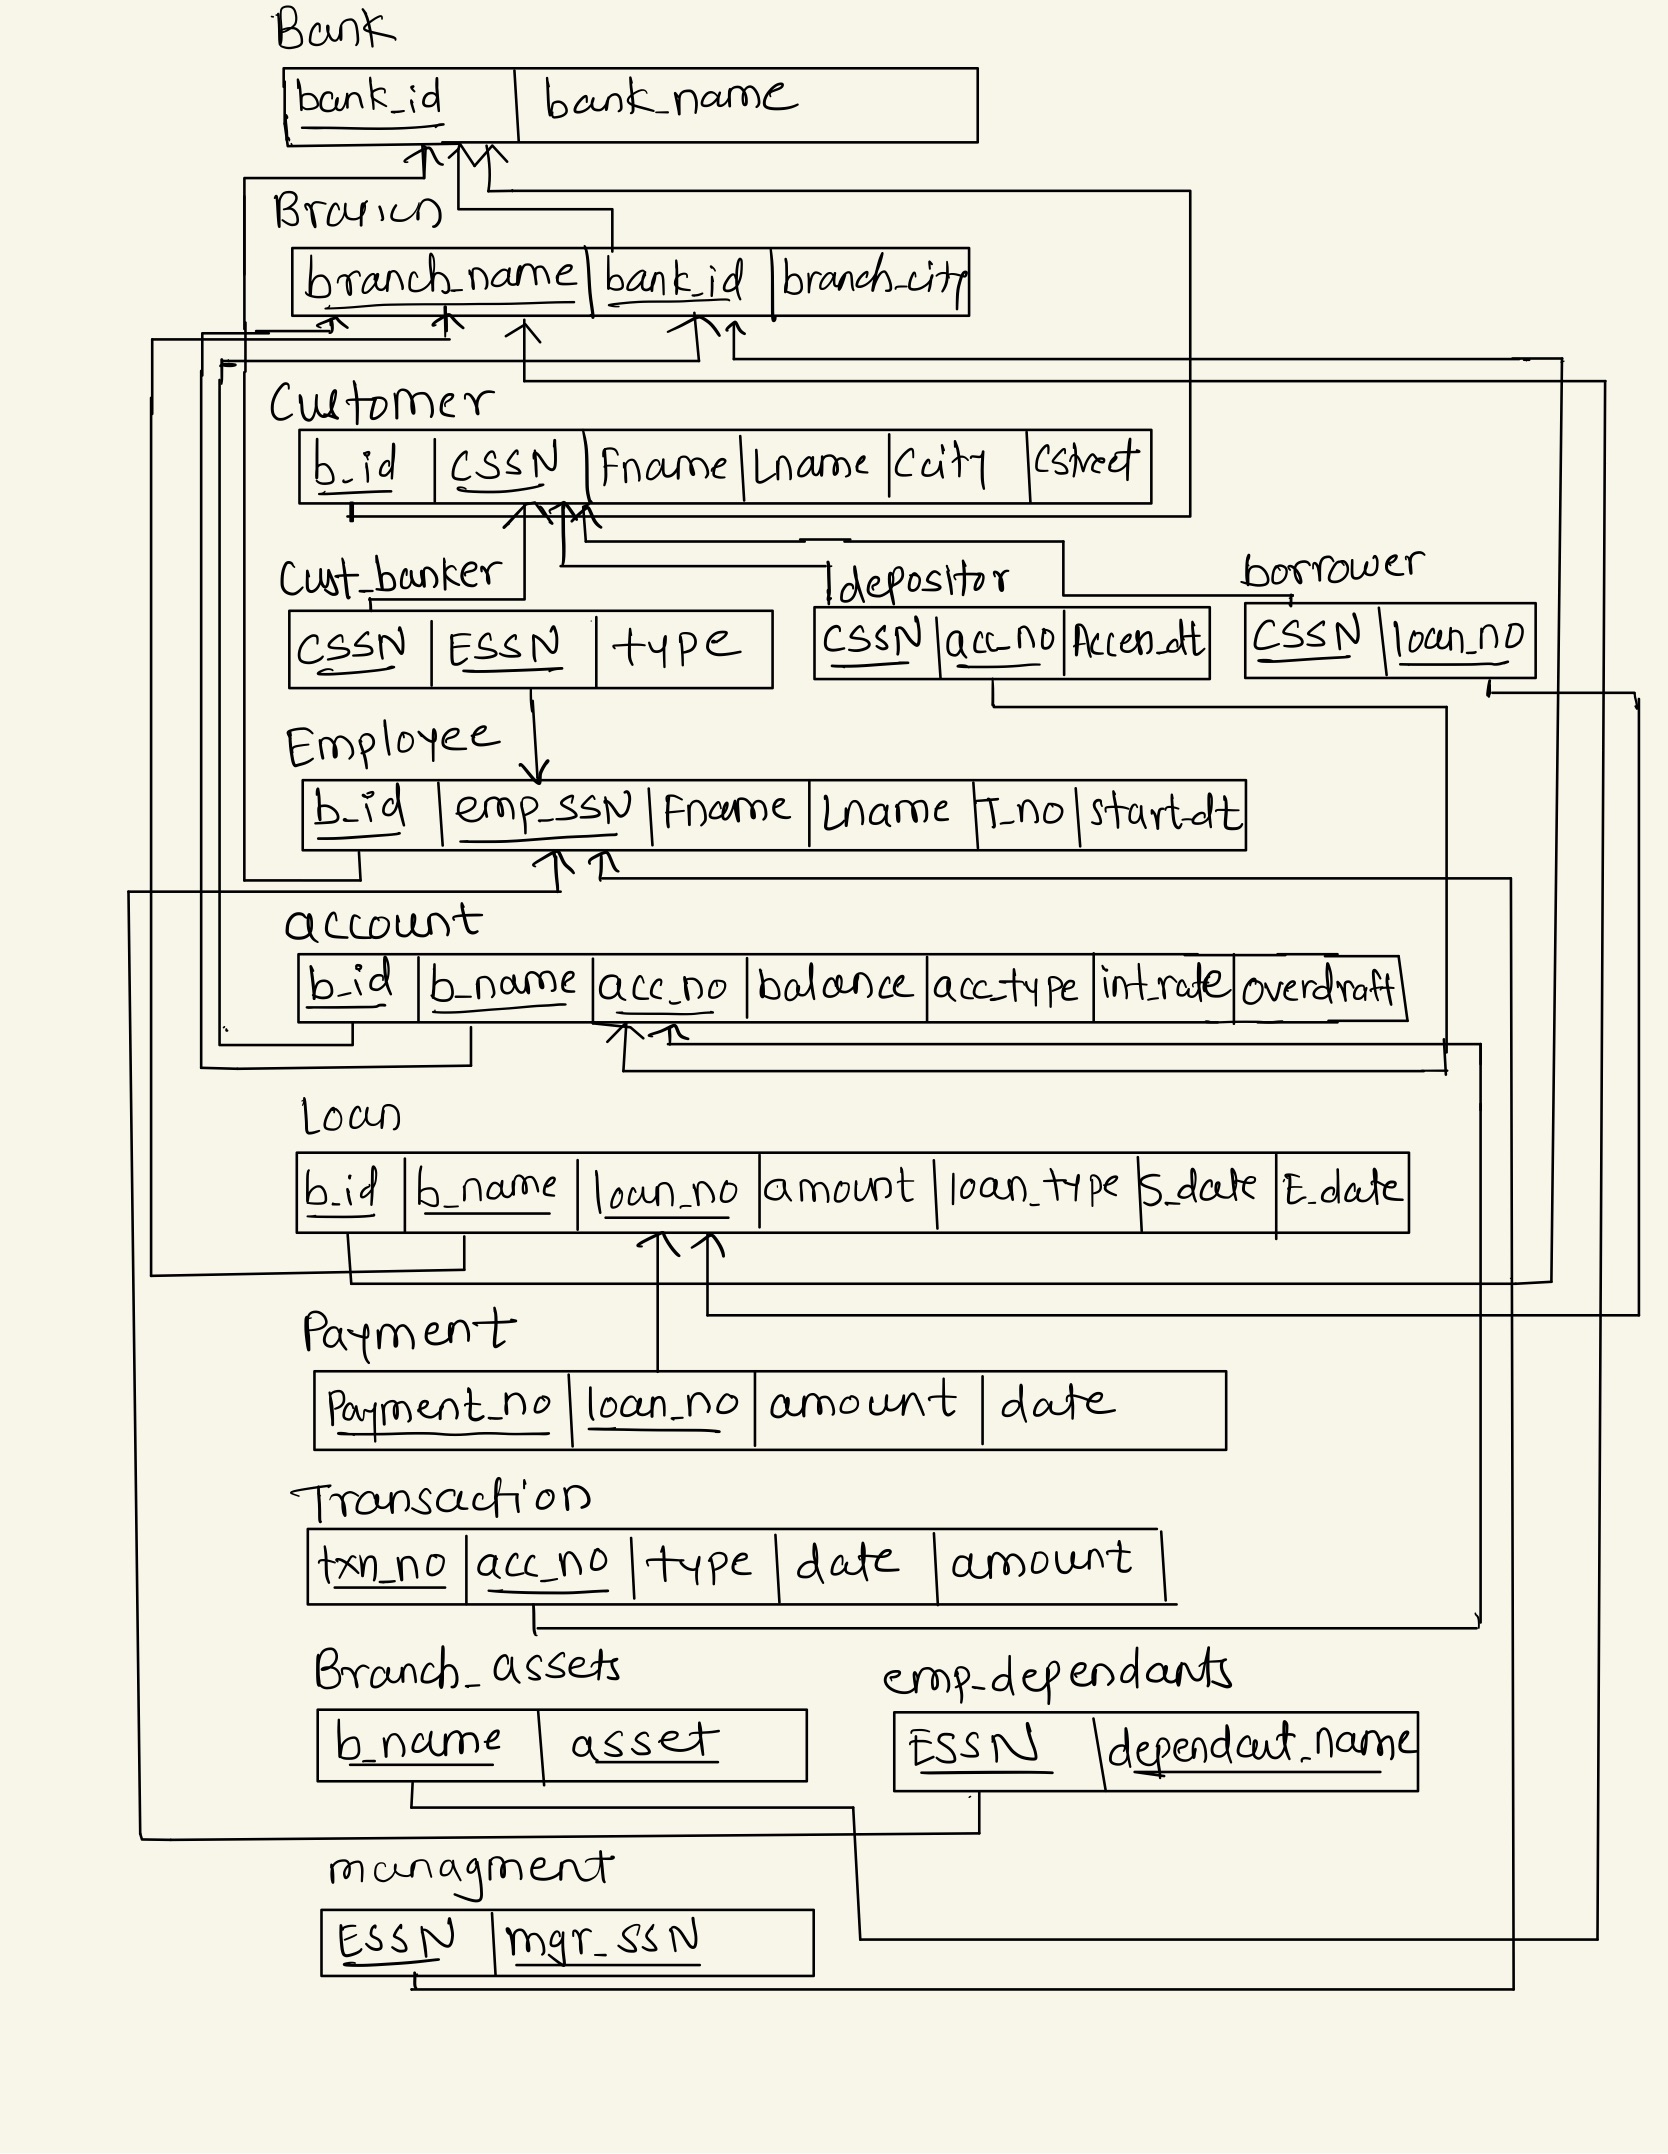 Bank
bank_id bank_name
Branch
branch_name bank_id branch_city
Customer
b_id CSSN Fname Lname Ccity Cstreet
Cust_banker depositor borrower
CSSN ESSN type CSSN acc_no Accen_dt CSSN loan_no
Employee
b_id emp_SSN Fname Lname T_no start_dt
account
b_id b_name acc_no balance acc_type int_rate overdraft
Loan
b_id b_name loan_no amount loan_type S_date E_date
Payment
Payment_no loan_no amount date
Transaction
txn_no acc_no type date amount
Branch_assets emp_dependants
b_name asset ESSN dependant_name
managment
ESSN mgr_SSN